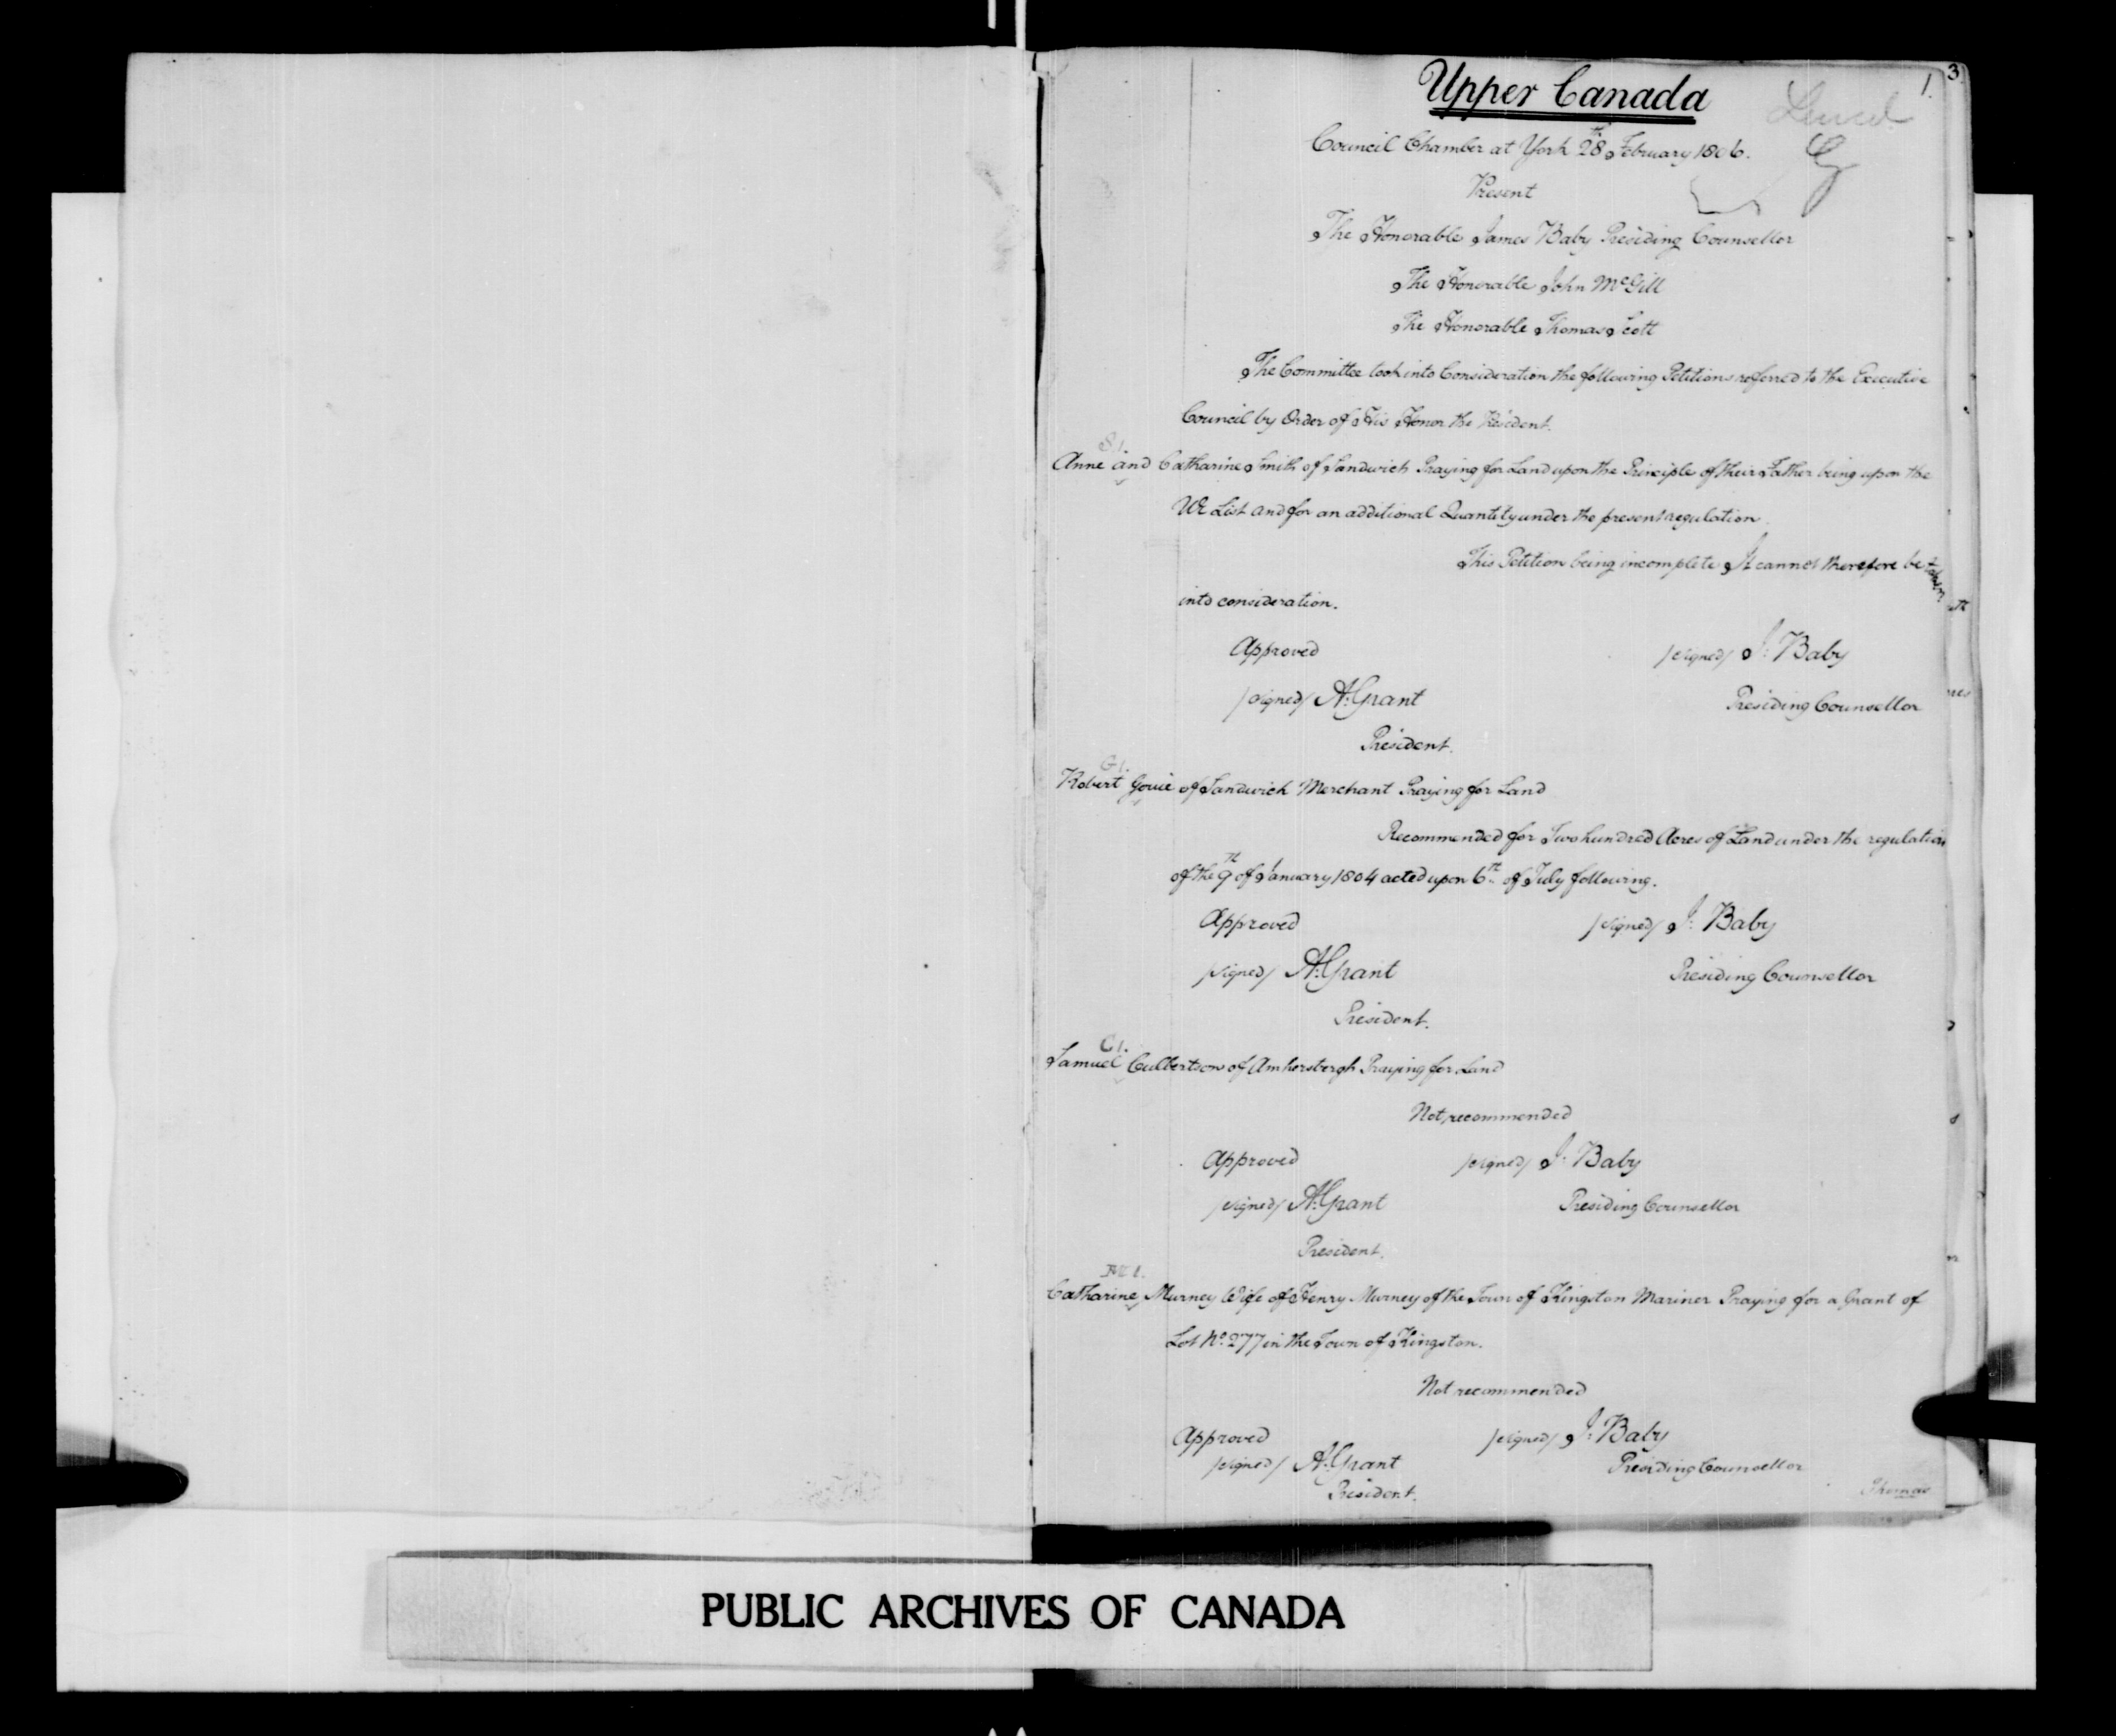 1.
3
Upper Canada
Council Chamber at York 28th February 1806.
Present
The Honorable James Baby Presiding Counsellor
The Honorable John McGill
The Honorable Thomas Scott
The Committee took into Consideration the following Petitions referred to the Executive
Council by Order of His Honor the President.
S1.
Anne and Catharine Smith of Sandwich Praying for Land upon the Principle of their Father being upon the
UE List and for an additional Quantity under the present regulation.
This Petition being incomplete It cannot therefore be taken
into consideration.
Approved /signed/ J: Baby
/signed/ A: Grant Presiding Counsellor
President.
G1.
Robert Gouie of Sandwich Merchant Praying for Land
Recommended for Two hundred Acres of Land under the regulation
of the 9th of January 1804 acted upon 6th of July following.
Approved /signed/ J: Baby
/signed/ A: Grant Presiding Counsellor
President.
C1.
Samuel Culbertson of Amhersbergh Praying for Land
Not recommended
Approved /signed/ J: Baby
/signed/ A: Grant Presiding Counsellor
President.
M1.
Catharine Murney Wife of Henry Murney of the Town of Kingston Mariner Praying for a Grant of
Lot No. 277 in the Town of Kingston.
Not recommended
Approved /signed/ J: Baby
/signed/ A: Grant Presiding Counsellor
President.
Thomas
PUBLIC ARCHIVES OF CANADA